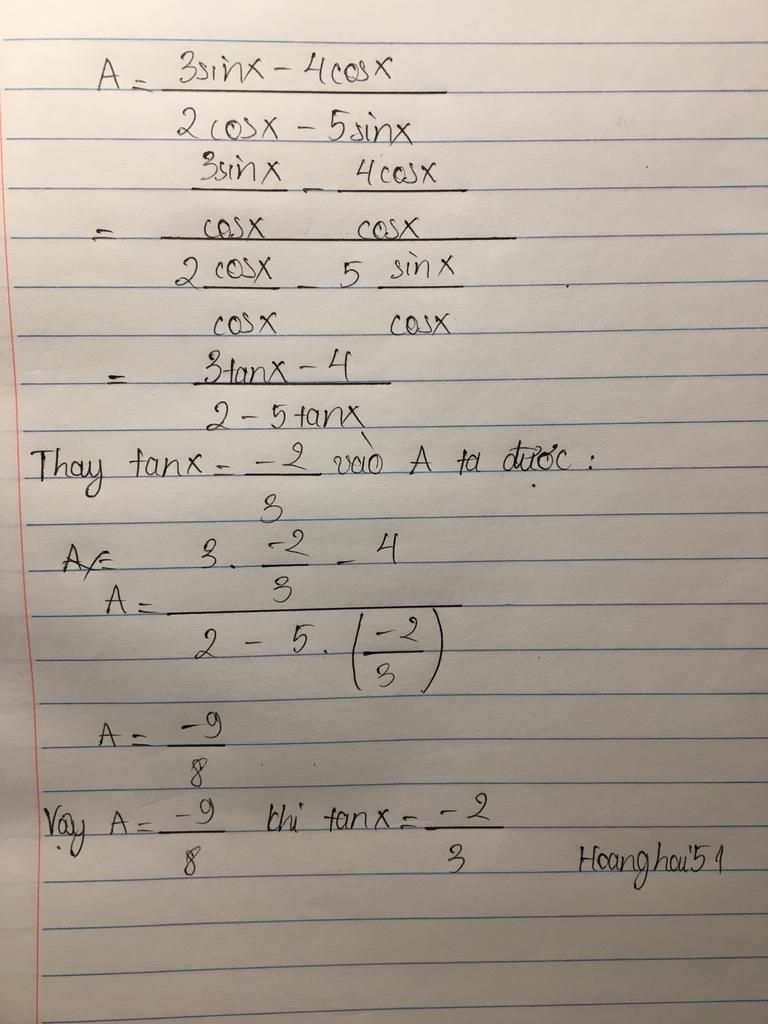 A = 3sinx - 4cosx
2cosx - 5sinx
3sinx - 4cosx
= cosx cosx
2 cosx - 5 sinx
cosx cosx
= 3tanx - 4
2 - 5tanx
Thay tanx = -2 vào A ta được :
3
A = 3 . -2 - 4
3
A =
2 - 5 . (-2)
3
A = -9
8
Vậy A = -9 khi tanx = -2
8 3 Hoanghai51